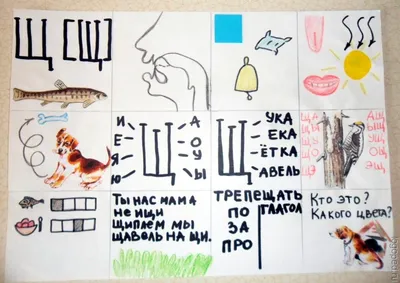 Щ [Щ]
И
Е
Я
Ю
Щ
А
О
У
Ы
Щ
УКА
ЕКА
ЁТКА
АВЕЛЬ
ЩА
ЩО
ЩУ
АЩ
ЫЩ
УЩ
ОЩ
ЭЩ
Ты нас мама
не ищи
щиплем мы
щавель на щи.
ТРЕПЕЩАТЬ
ПО
ЗА
ПРО
ГЛАГОЛ
Кто это?
Какого цвета?